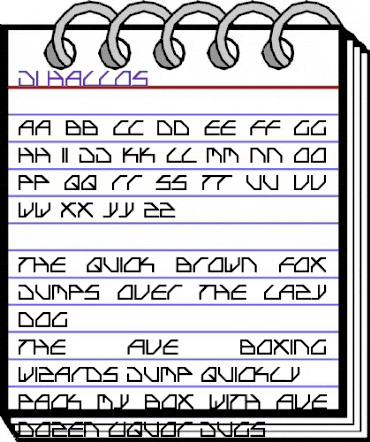 JI HALLOS
AA BB CC DD EE FF GG
HH II JJ KK LL MM NN OO
PP QQ RR SS TT UU VV
WW XX YY ZZ
THE QUICK BROWN FOX
JUMPS OVER THE LAZY
DOG
THE FIVE BOXING
WIZARDS JUMP QUICKLY
PACK MY BOX WITH FIVE
DOZEN LIQUOR JUGS